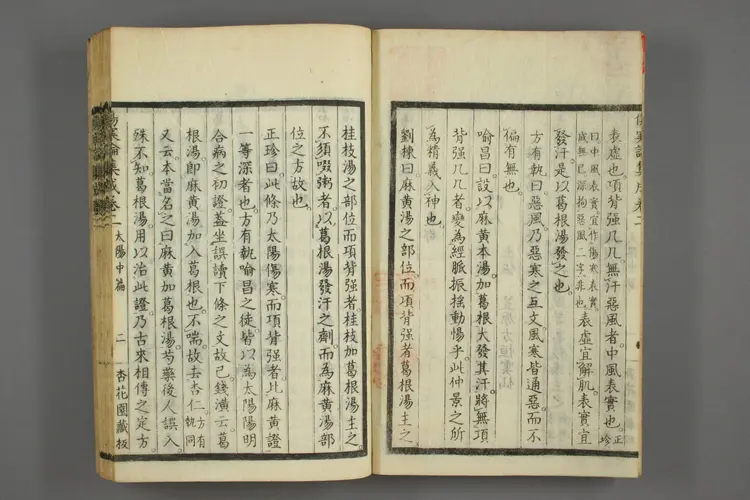 表虛也項背强几几無汗惡風者中風表實也正珍
曰中風表實宜作傷寒表實
成無已深拘惡風二字非也表虛宜解肌表實宜
發汗是以葛根湯發之也
方有執曰惡風乃惡寒之互文風寒皆通惡而不
偏有無也
喻昌曰設以麻黃本湯加葛根大發其汗將無項
背强几几者變為經脈振搖動惕乎此仲景之所
為精義入神也
劉棟曰麻黃湯之部位而項背强者葛根湯主之
桂枝湯之部位而項背强者桂枝加葛根湯主之
不須啜粥者以葛根湯發汗之劑而為麻黃湯部
位之方故也
正珍曰此條乃太陽傷寒而項背强者比麻黃證
一等深者也方有執喻昌之徒皆以為太陽陽明
合病之初證蓋坐誤讀下條之文故已錢潢云葛
根湯即麻黃湯加入葛根也不喘故去杏仁方有執同
又云本當名之曰麻黃加葛根湯芍藥後人誤入
殊不知葛根湯用以治此證乃古來相傳之定方
傷寒論集成卷二 太陽中篇 二 杏花園藏板